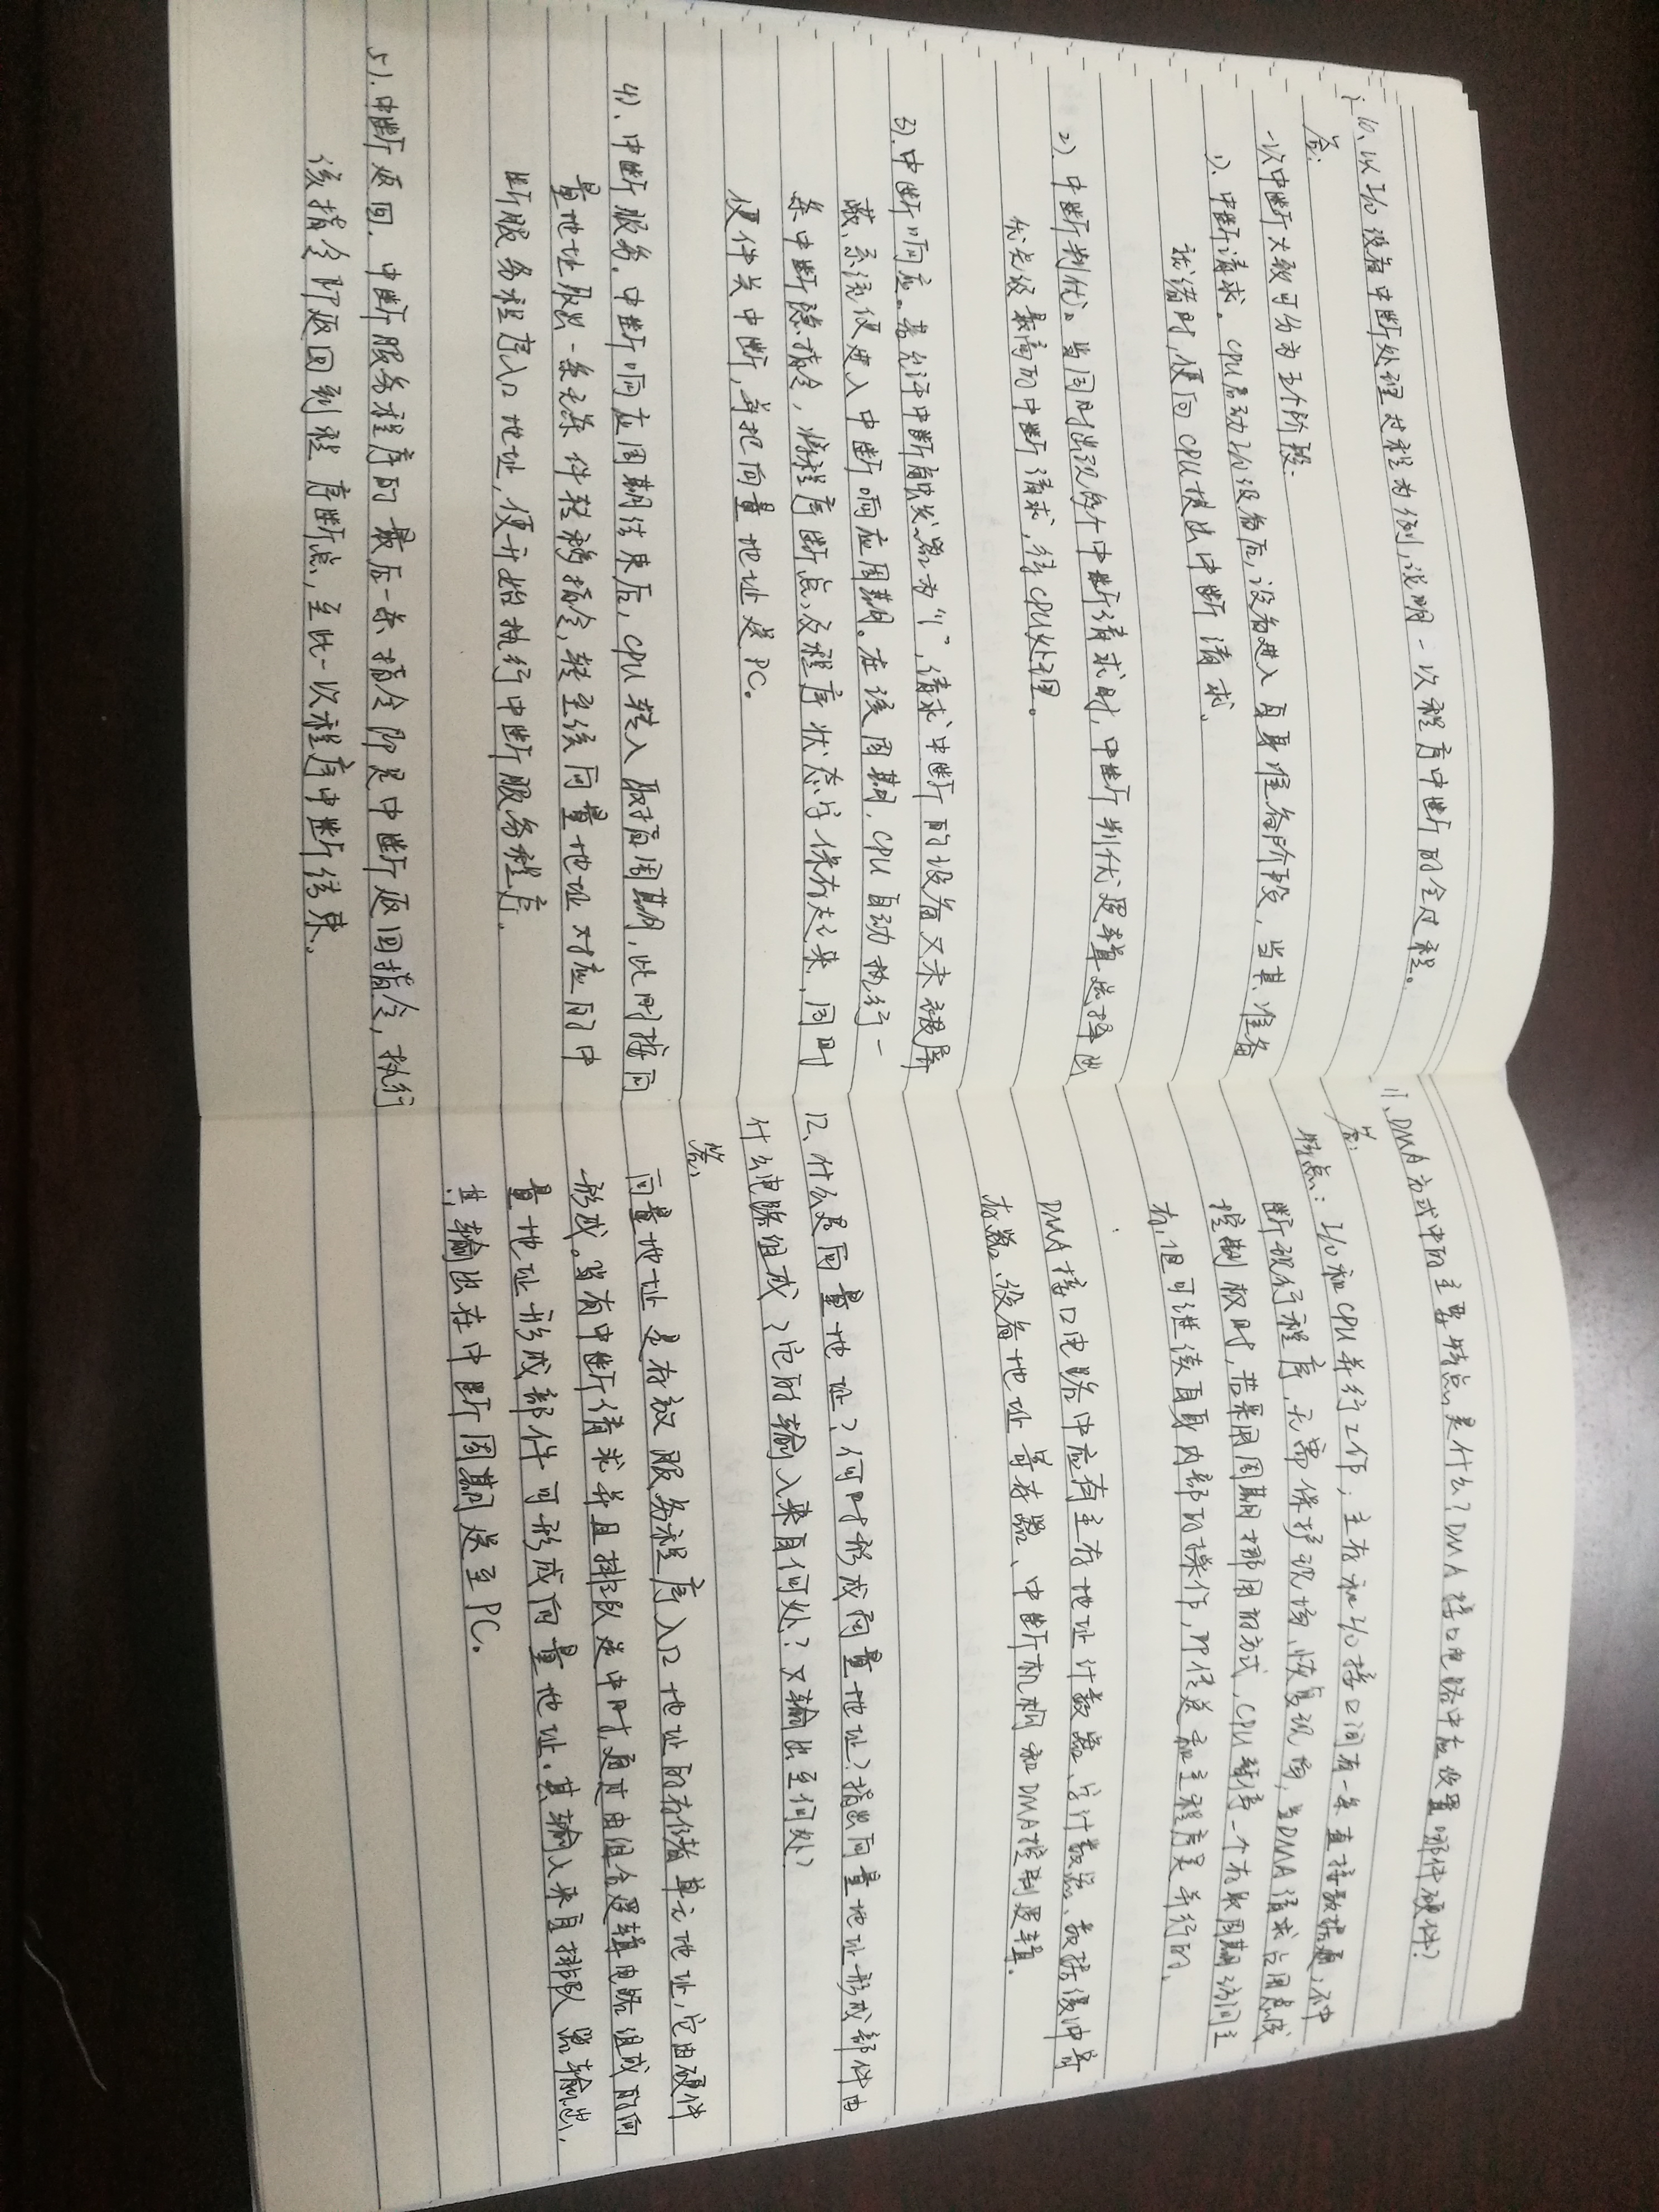 10、以I/O设备中断处理过程为例,说明一次程序中断的全过程。
答:
一次中断大致可分为五个阶段:
1)、中断请求。CPU启动I/O设备后,设备进入自身准备阶段,当其准备
就绪时,便向CPU提出中断请求。
2)、中断判优。当同时出现多个中断请求时,中断判优逻辑选择出
优先级最高的中断请求,待CPU处理。
3)、中断响应。若允许中断触发器为“1”,请求中断的设备又未被屏
蔽,系统便进入中断响应周期。在该周期,CPU自动执行一
条中断隐指令,将程序断点及程序状态字保存起来,同时
硬件关中断,并把向量地址送PC。
4)、中断服务。中断响应周期结束后,CPU转入取指周期,此时按向
量地址取出一条无条件转移指令,转至该向量地址对应的中
断服务程序入口地址,便开始执行中断服务程序。
5)、中断返回。中断服务程序的最后一条指令即是中断返回指令,执行
该指令即返回到程序断点,至此一次程序中断结束。
11、DMA方式中的主要特点是什么?DMA接口电路中应设置哪些硬件?
答:
特点:I/O和CPU并行工作;主存和I/O接口间有一条直接数据通,不中
断现行程序,无需保护现场、恢复现场,当DMA请求占用总线
控制权时,若采用周期挪用的方式,CPU暂停一个存取周期访问主
存,但可继续自身内部的操作,即传送和主程序是并行的。
DMA接口电路中应有主存地址计数器、字计数器、数据缓冲寄
存器、设备地址寄存器、中断机构和DMA控制逻辑。
12、什么是向量地址?何时形成向量地址?指出向量地址形成部件由
什么电路组成?它的输入来自何处?又输出至何处?
答:
向量地址是存放服务程序入口地址的存储单元地址,它由硬件
形成。当有中断请求并且排队选中时,通过由组合逻辑电路组成的向
量地址形成部件可形成向量地址。其输入来自排队器输出,
其输出在中断周期送至PC。